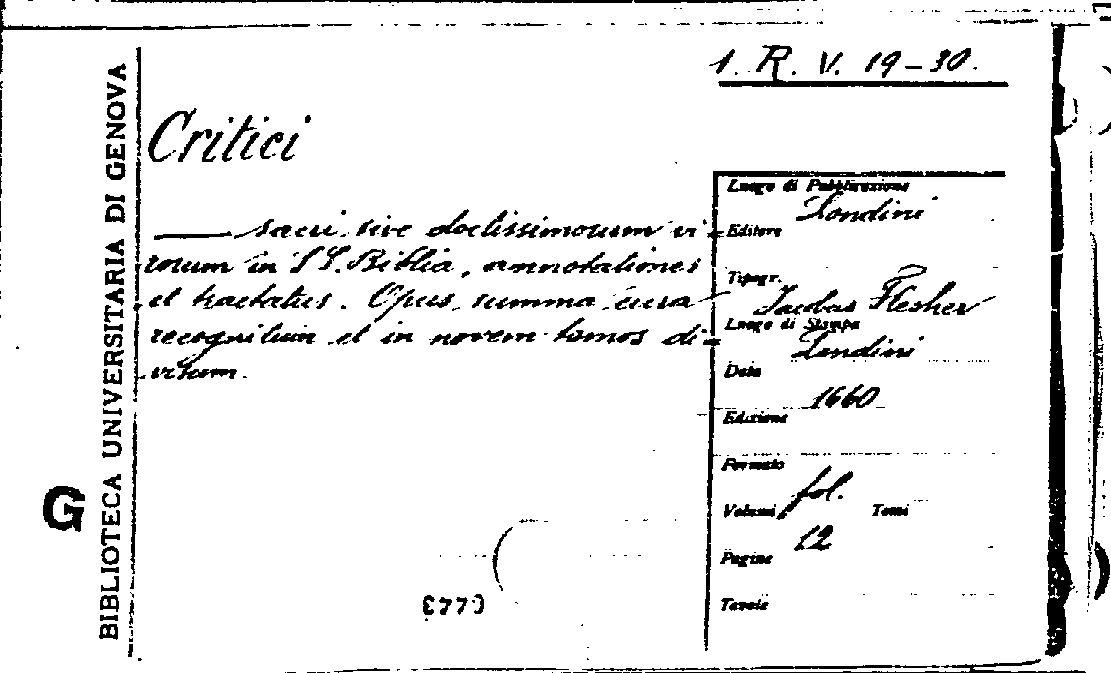 1. R. V. 19-30.
BIBLIOTECA UNIVERSITARIA DI GENOVA
G
Critici
sacri sive doctissimorum vi=
rorum in SS. Biblia, annotationes
et tractatus. Opus summa cura
recognitum et in novem tomos di=
visum.
Luogo di Pubblicazione
Londini
Editore
Tipogr.
Jacobus Flesher
Luogo di Stampa
Londini
Data
1660
Edizione
Formato
fol.
Volumi Tomi
12
Pagine
Tavole